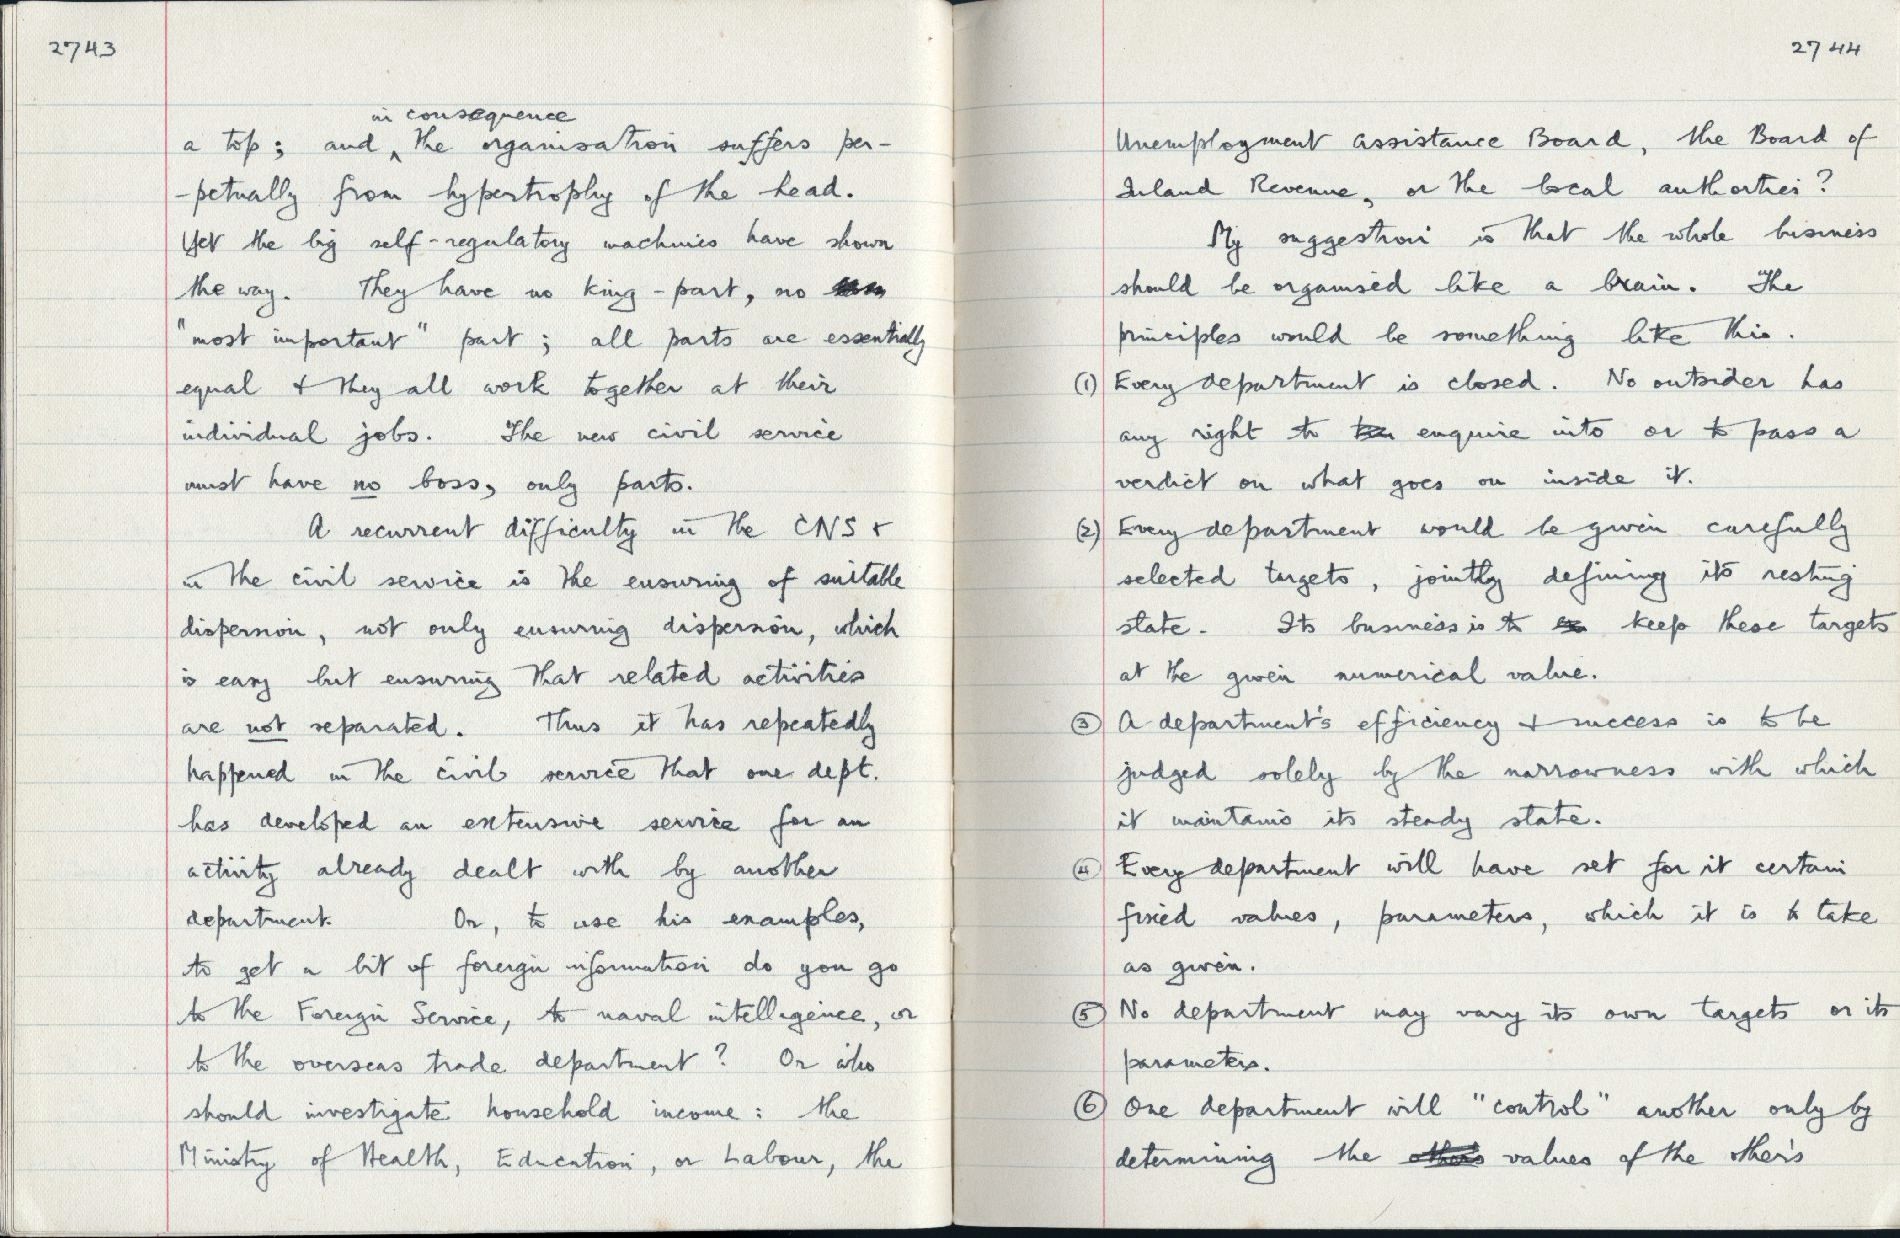 2743
in consequence
a top; and ‸ the organisation suffers per-
-petually from hypertrophy of the head.
Yet the big self-regulatory machines have shown
the way. They have no king-part, no
"most important" part; all parts are essentially
equal & they all work together at their
individual jobs. The new civil service
must have no boss, only parts.
A recurrent difficulty in the CNS &
in the civil service is the ensuring of suitable
dispersion, not only ensuring dispersion, which
is easy but ensuring that related activities
are not separated. Thus it has repeatedly
happened in the civil service that one dept.
has developed an extensive service for an
activity already dealt with by another
department. Or, to use his examples,
to get a bit of foreign information do you go
to the Foreign Service, to naval intelligence, or
to the overseas trade department? Or who
should investigate household income: the
Ministry of Health, Education, or Labour, the
2744
Unemployment Assistance Board, the Board of
Inland Revenue, or the local authorties?
My suggestion is that the whole business
should be organised like a brain. The
principles would be something like this.
(1) Every department is closed. No outsider has
any right to enquire into or to pass a
verdict on what goes on inside it.
(2) Every department would be given carefully
selected targets, jointly defining its resting
state. Its business is to keep these targets
at the given numerical value.
(3) A department's efficiency & success is to be
judged solely by the narrowness with which
it maintains its steady state.
(4) Every department will have set for it certain
fixed values, parameters, which it is to take
as given.
(5) No department may vary its own targets or its
parameters.
(6) One department will "control" another only by
determining the others values of the other's